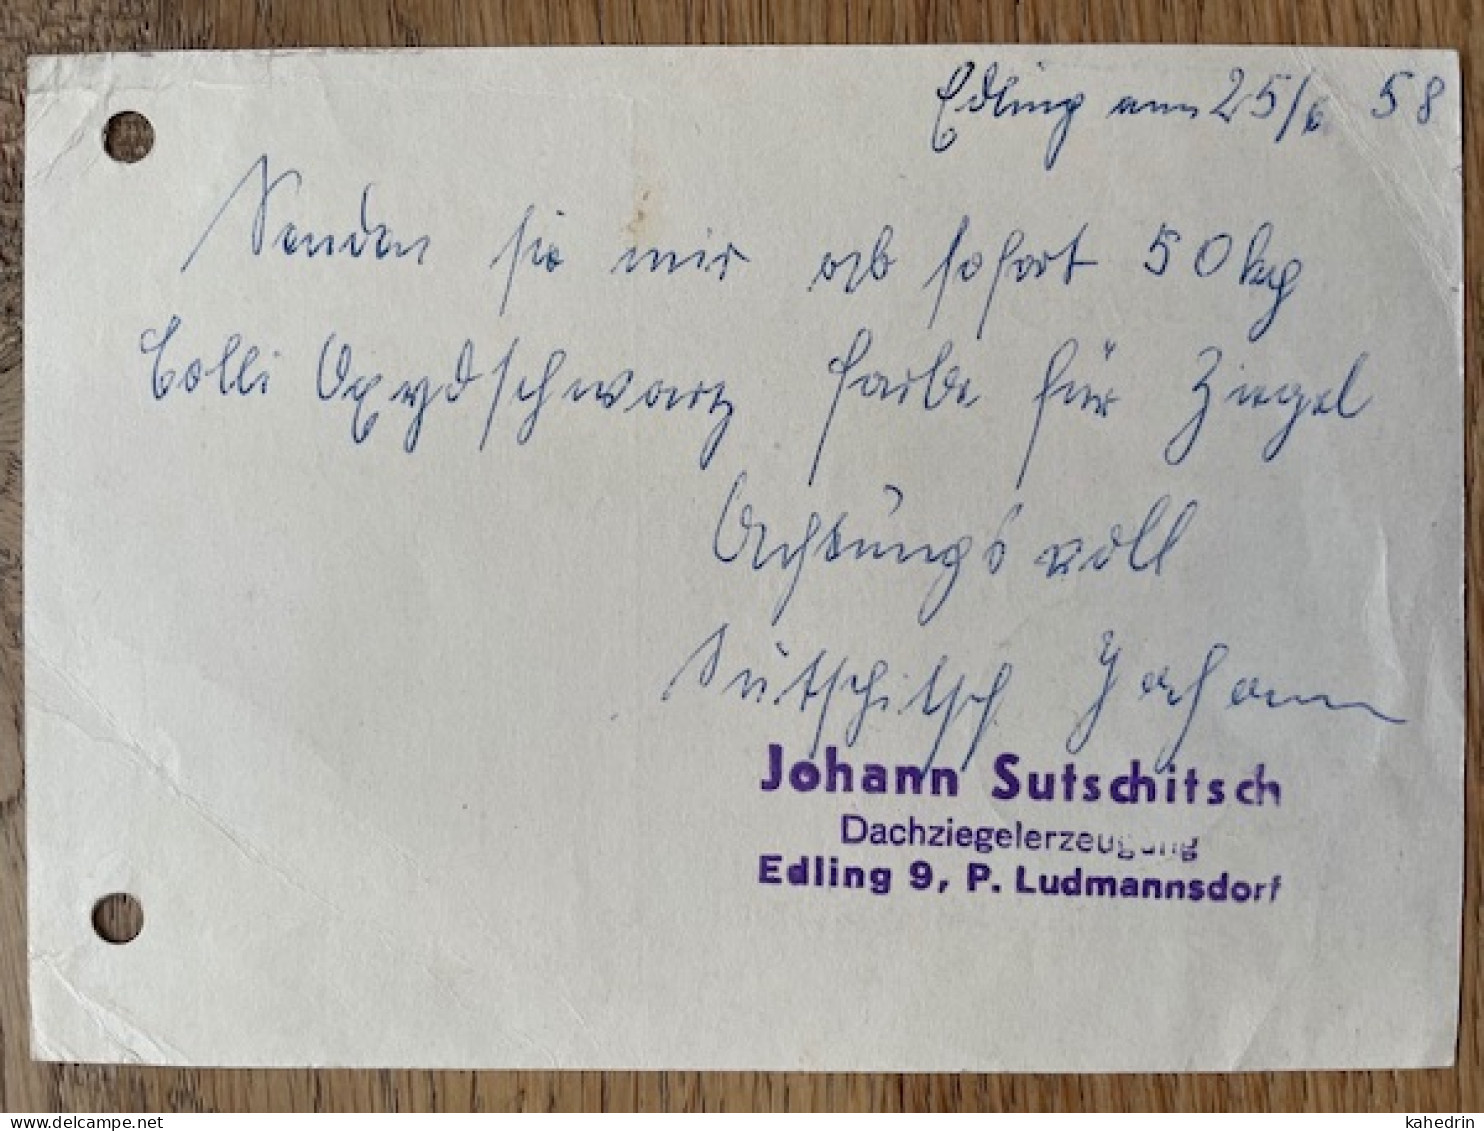 Edling am 25/6 58
Senden sie mir ab sofort 50 kg
Colli Oxydschwarz farbe für Ziegel
Achtungsvoll
Sutschitsch Johann
Johann Sutschitsch
Dachziegelerzeugung
Edling 9, P. Ludmannsdorf
kahedrin
delcampe.net